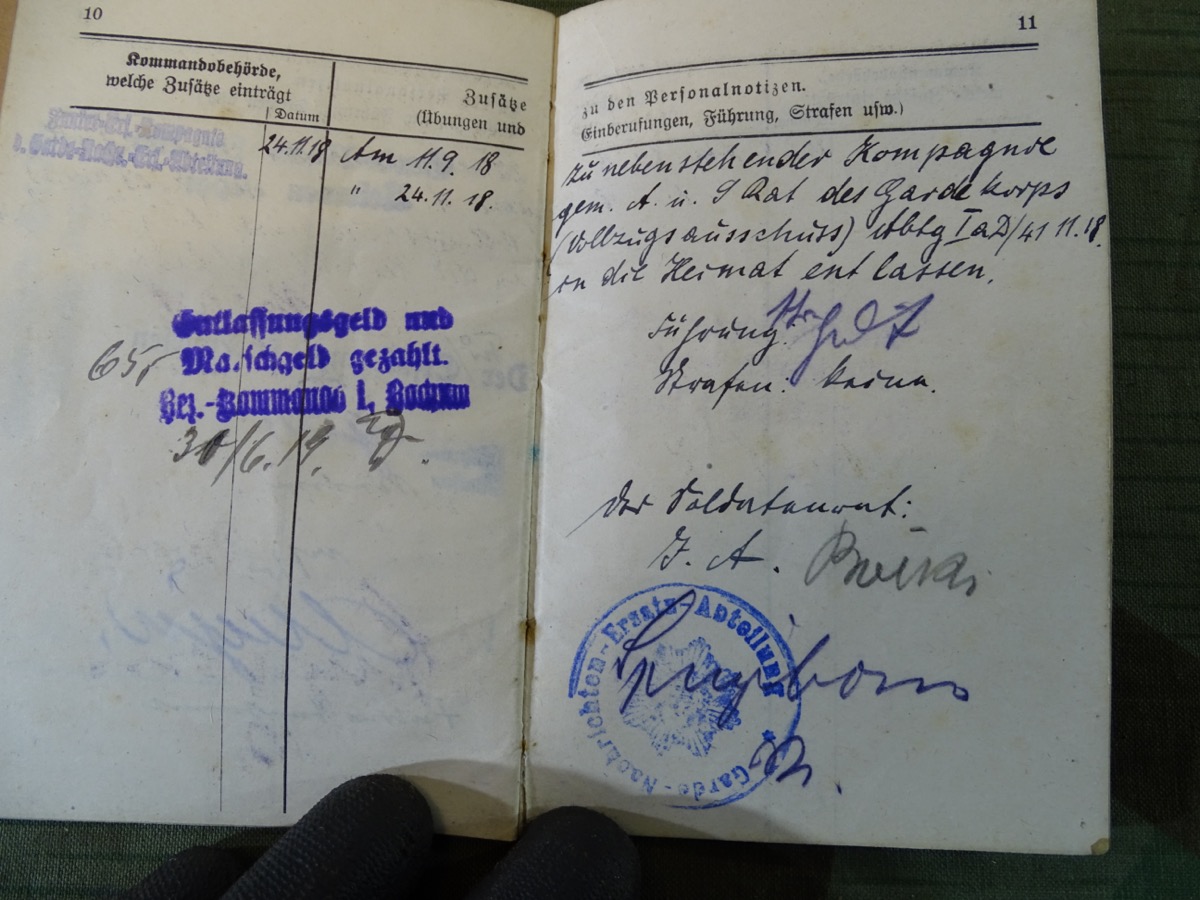 10
Kommandobehörde,
welche Zusätze einträgt
Datum
Zusätze
(Übungen und
Funker-Ers.-Kompagnie
d. Garde-Nachr.-Ers.-Abteilung.
24.11.18 Am 11.9.18
" 24.11.18.
Entlassungsgeld und
Marschgeld gezahlt.
Bez.-Kommando I, Bochum
30/6.19.
11
zu den Personalnotizen.
Einberufungen, Führung, Strafen usw.)
zu nebenstehender Kompagnie
gem. A. u. S Rat des Gardekorps
(Vollzugsausschuss) Abtg Ia D/41 11.18.
in die Heimat entlassen.
Führung: Gut
Strafen: keine.
Der Soldatenrat:
I. A.
Garde-Nachrichten-Ersatz-Abteilung